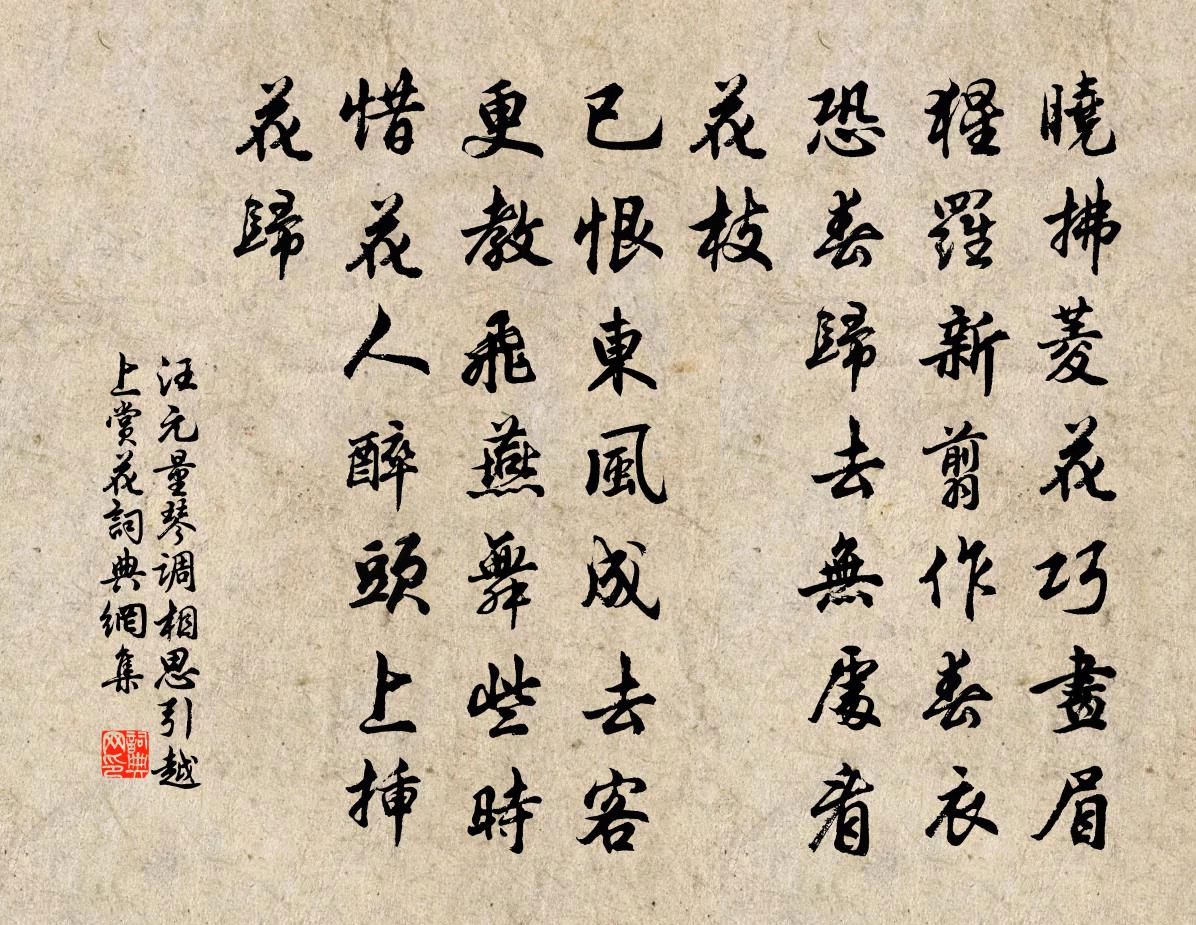 曉拂菱花巧畫眉
猩羅新剪作春衣
恐春歸去無處看
花枝
已恨東風成去客
更教飛燕舞些時
惜花人醉頭上插
花歸
汪元量琴调相思引越
上賞花詞典網集
詞典
网印